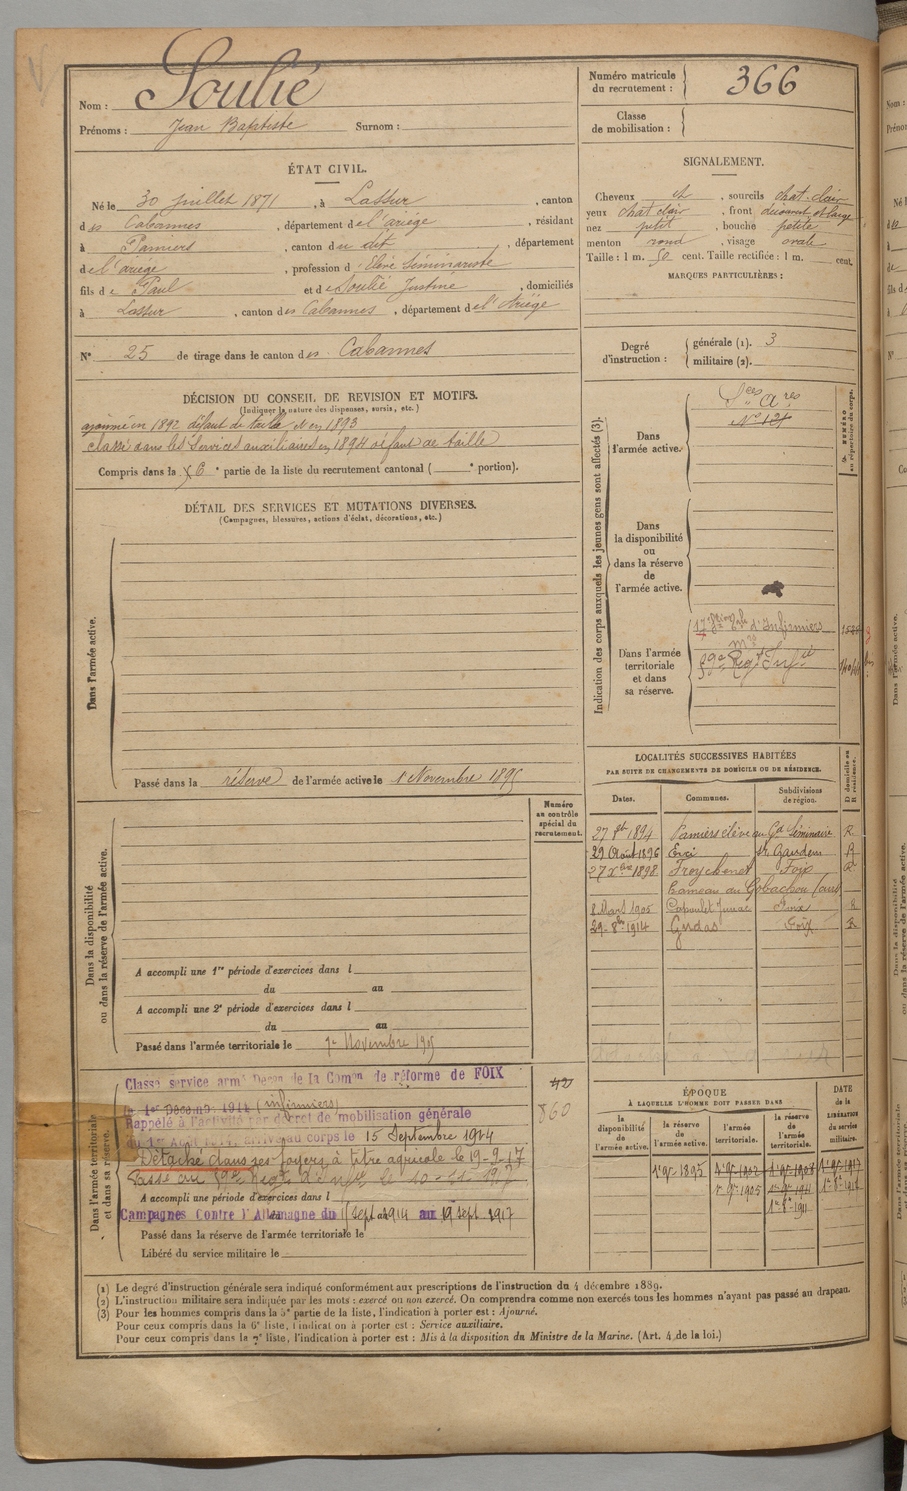 Nom : Soulié
Prénoms : Jean Baptiste Surnom :
Numéro matricule du recrutement : 366
Classe de mobilisation :
ÉTAT CIVIL.
Né le 30 juillet 1871, à Lassur, canton
des Cabannes, département de l'ariége, résidant
à Pamiers, canton du dit, département
de l'ariége, profession d'Elève Séminariste
fils de Paul et de Soulié Justine, domiciliés
à Lassur, canton des Cabannes, département de l'Ariége
N° 25 de tirage dans le canton des Cabannes
SIGNALEMENT.
Cheveux et, sourcils chat. clair
yeux chat clair, front découvert et large
nez petit, bouche petite
menton rond, visage ovale
Taille : 1 m. 50 cent. Taille rectifiée : 1 m. cent.
MARQUES PARTICULIÈRES :
Degré d'instruction : générale (1). 3
militaire (2).
DÉCISION DU CONSEIL DE REVISION ET MOTIFS.
(Indiquer la nature des dispenses, sursis, etc.)
ajourné en 1892 défaut de taille et en 1893
classé dans les Services auxiliaires en 1894 défaut de taille
Compris dans la 6e partie de la liste du recrutement cantonal ( e portion).
DÉTAIL DES SERVICES ET MUTATIONS DIVERSES.
(Campagnes, blessures, actions d'éclat, décorations, etc.)
Dans l'armée active.
Passé dans la réserve de l'armée active le 1 Novembre 1895
Indication des corps auxquels les jeunes gens sont affectés (3).
NUMÉRO au répertoire du corps.
Dans l'armée active.
Dans la disponibilité ou dans la réserve de l'armée active.
Dans l'armée territoriale et dans sa réserve.
17e d'Infirmiers
59e Reg Infie
Dans la disponibilité ou dans la réserve de l'armée active.
Numéro au contrôle spécial du recrutement.
A accompli une 1re période d'exercices dans l
du au
A accompli une 2e période d'exercices dans l
du au
Passé dans l'armée territoriale le 1er Novembre 1905
LOCALITÉS SUCCESSIVES HABITÉES
PAR SUITE DE CHANGEMENTS DE DOMICILE OU DE RÉSIDENCE.
Dates. Communes. Subdivisions de région. D domicile ou R résidence.
27 8bre 1894 Pamiers élève au Gd Séminaire R
29 Août 1896 St Gaudens R
27 Xbre 1898 Foix R
hameau du
8 Mars 1905 Capoulet Junac
29. 8bre 1914 Gudas Foix R
Dans l'armée territoriale et dans sa réserve.
Classé service armé Décon de la Comon de réforme de FOIX
du 1er Décemb. 1914 (infirmiers)
Rappelé à l'activité par décret de mobilisation générale
du 1er Août 1914. Arrivé au corps le 15 Septembre 1914
Détaché dans ses foyers à titre agricole le 19-9-17
A accompli une période d'exercices dans l
Campagnes Contre l'Allemagne du 15 Sept 1914 au 19 Sept. 1917
Passé dans la réserve de l'armée territoriale le
Libéré du service militaire le
860
ÉPOQUE
À LAQUELLE L'HOMME DOIT PASSER DANS
DATE de la LIBÉRATION du service militaire.
la disponibilité de l'armée active. la réserve de l'armée active. l'armée territoriale. la réserve de l'armée territoriale.
1er 9bre 1895 1er 9bre 1902 1er 9bre 1908 1er 9bre 1917
1er 9bre 1905 1er 9bre 1911 1er 8bre 1918
1er 8bre 1911
(1) Le degré d'instruction générale sera indiqué conformément aux prescriptions de l'instruction du 4 décembre 1889.
(2) L'instruction militaire sera indiquée par les mots : exercé ou non exercé. On comprendra comme non exercés tous les hommes n'ayant pas passé au drapeau.
(3) Pour les hommes compris dans la 5e partie de la liste, l'indication à porter est : Ajourné.
Pour ceux compris dans la 6e liste, l'indication à porter est : Service auxiliaire.
Pour ceux compris dans la 7e liste, l'indication à porter est : Mis à la disposition du Ministre de la Marine. (Art. 4 de la loi.)